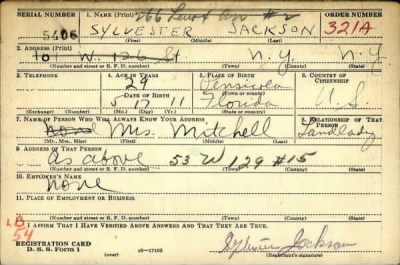 SERIAL NUMBER 1. NAME (Print) ORDER NUMBER
266 Lenox Ave #2
5406 SYLVESTER JACKSON 321A
(First) (Middle) (Last)
2. ADDRESS (Print)
10 W. 126 St N.Y. N.Y.
(Number and street or R. F. D. number) (Town) (County) (State)
3. TELEPHONE 4. AGE IN YEARS 5. PLACE OF BIRTH 6. COUNTRY OF CITIZENSHIP
29 Pensicola
DATE OF BIRTH (Town or county)
5 17 11 Florida U.S.
(Exchange) (Number) (Mo.) (Day) (Yr.) (State or country)
7. NAME OF PERSON WHO WILL ALWAYS KNOW YOUR ADDRESS 8. RELATIONSHIP OF THAT PERSON
Mrs. Mitchell Landlady
(Mr., Mrs., Miss) (First) (Middle) (Last)
9. ADDRESS OF THAT PERSON
As above 53 W 129 #15
(Number and street or R. F. D. number) (Town) (County) (State)
10. EMPLOYER'S NAME
none
11. PLACE OF EMPLOYMENT OR BUSINESS
(Number and street or R. F. D. number) (Town) (County) (State)
I AFFIRM THAT I HAVE VERIFIED ABOVE ANSWERS AND THAT THEY ARE TRUE.
54
REGISTRATION CARD
D. S. S. Form 1 (over) 16-17105 Sylvester Jackson
(Registrant's signature)